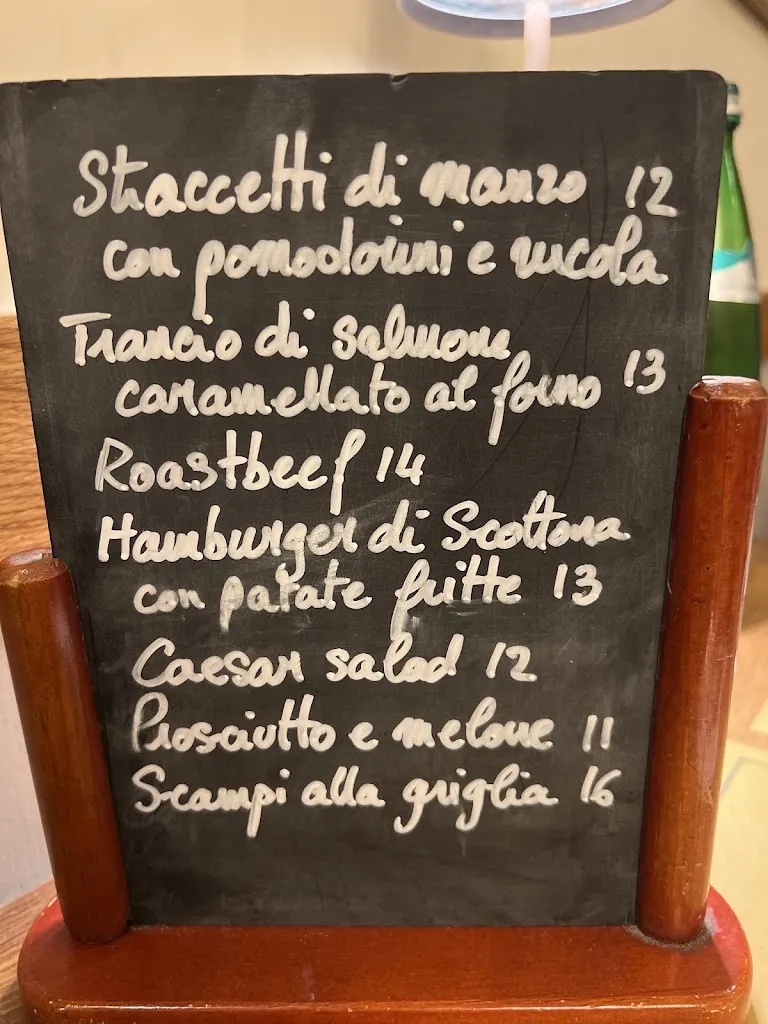 Straccetti di manzo 12
con pomodorini e rucola
Trancio di salmone
caramellato al forno 13
Roastbeef 14
Hamburger di Scottona
con patate fritte 13
Caesar salad 12
Prosciutto e melone 11
Scampi alla griglia 16